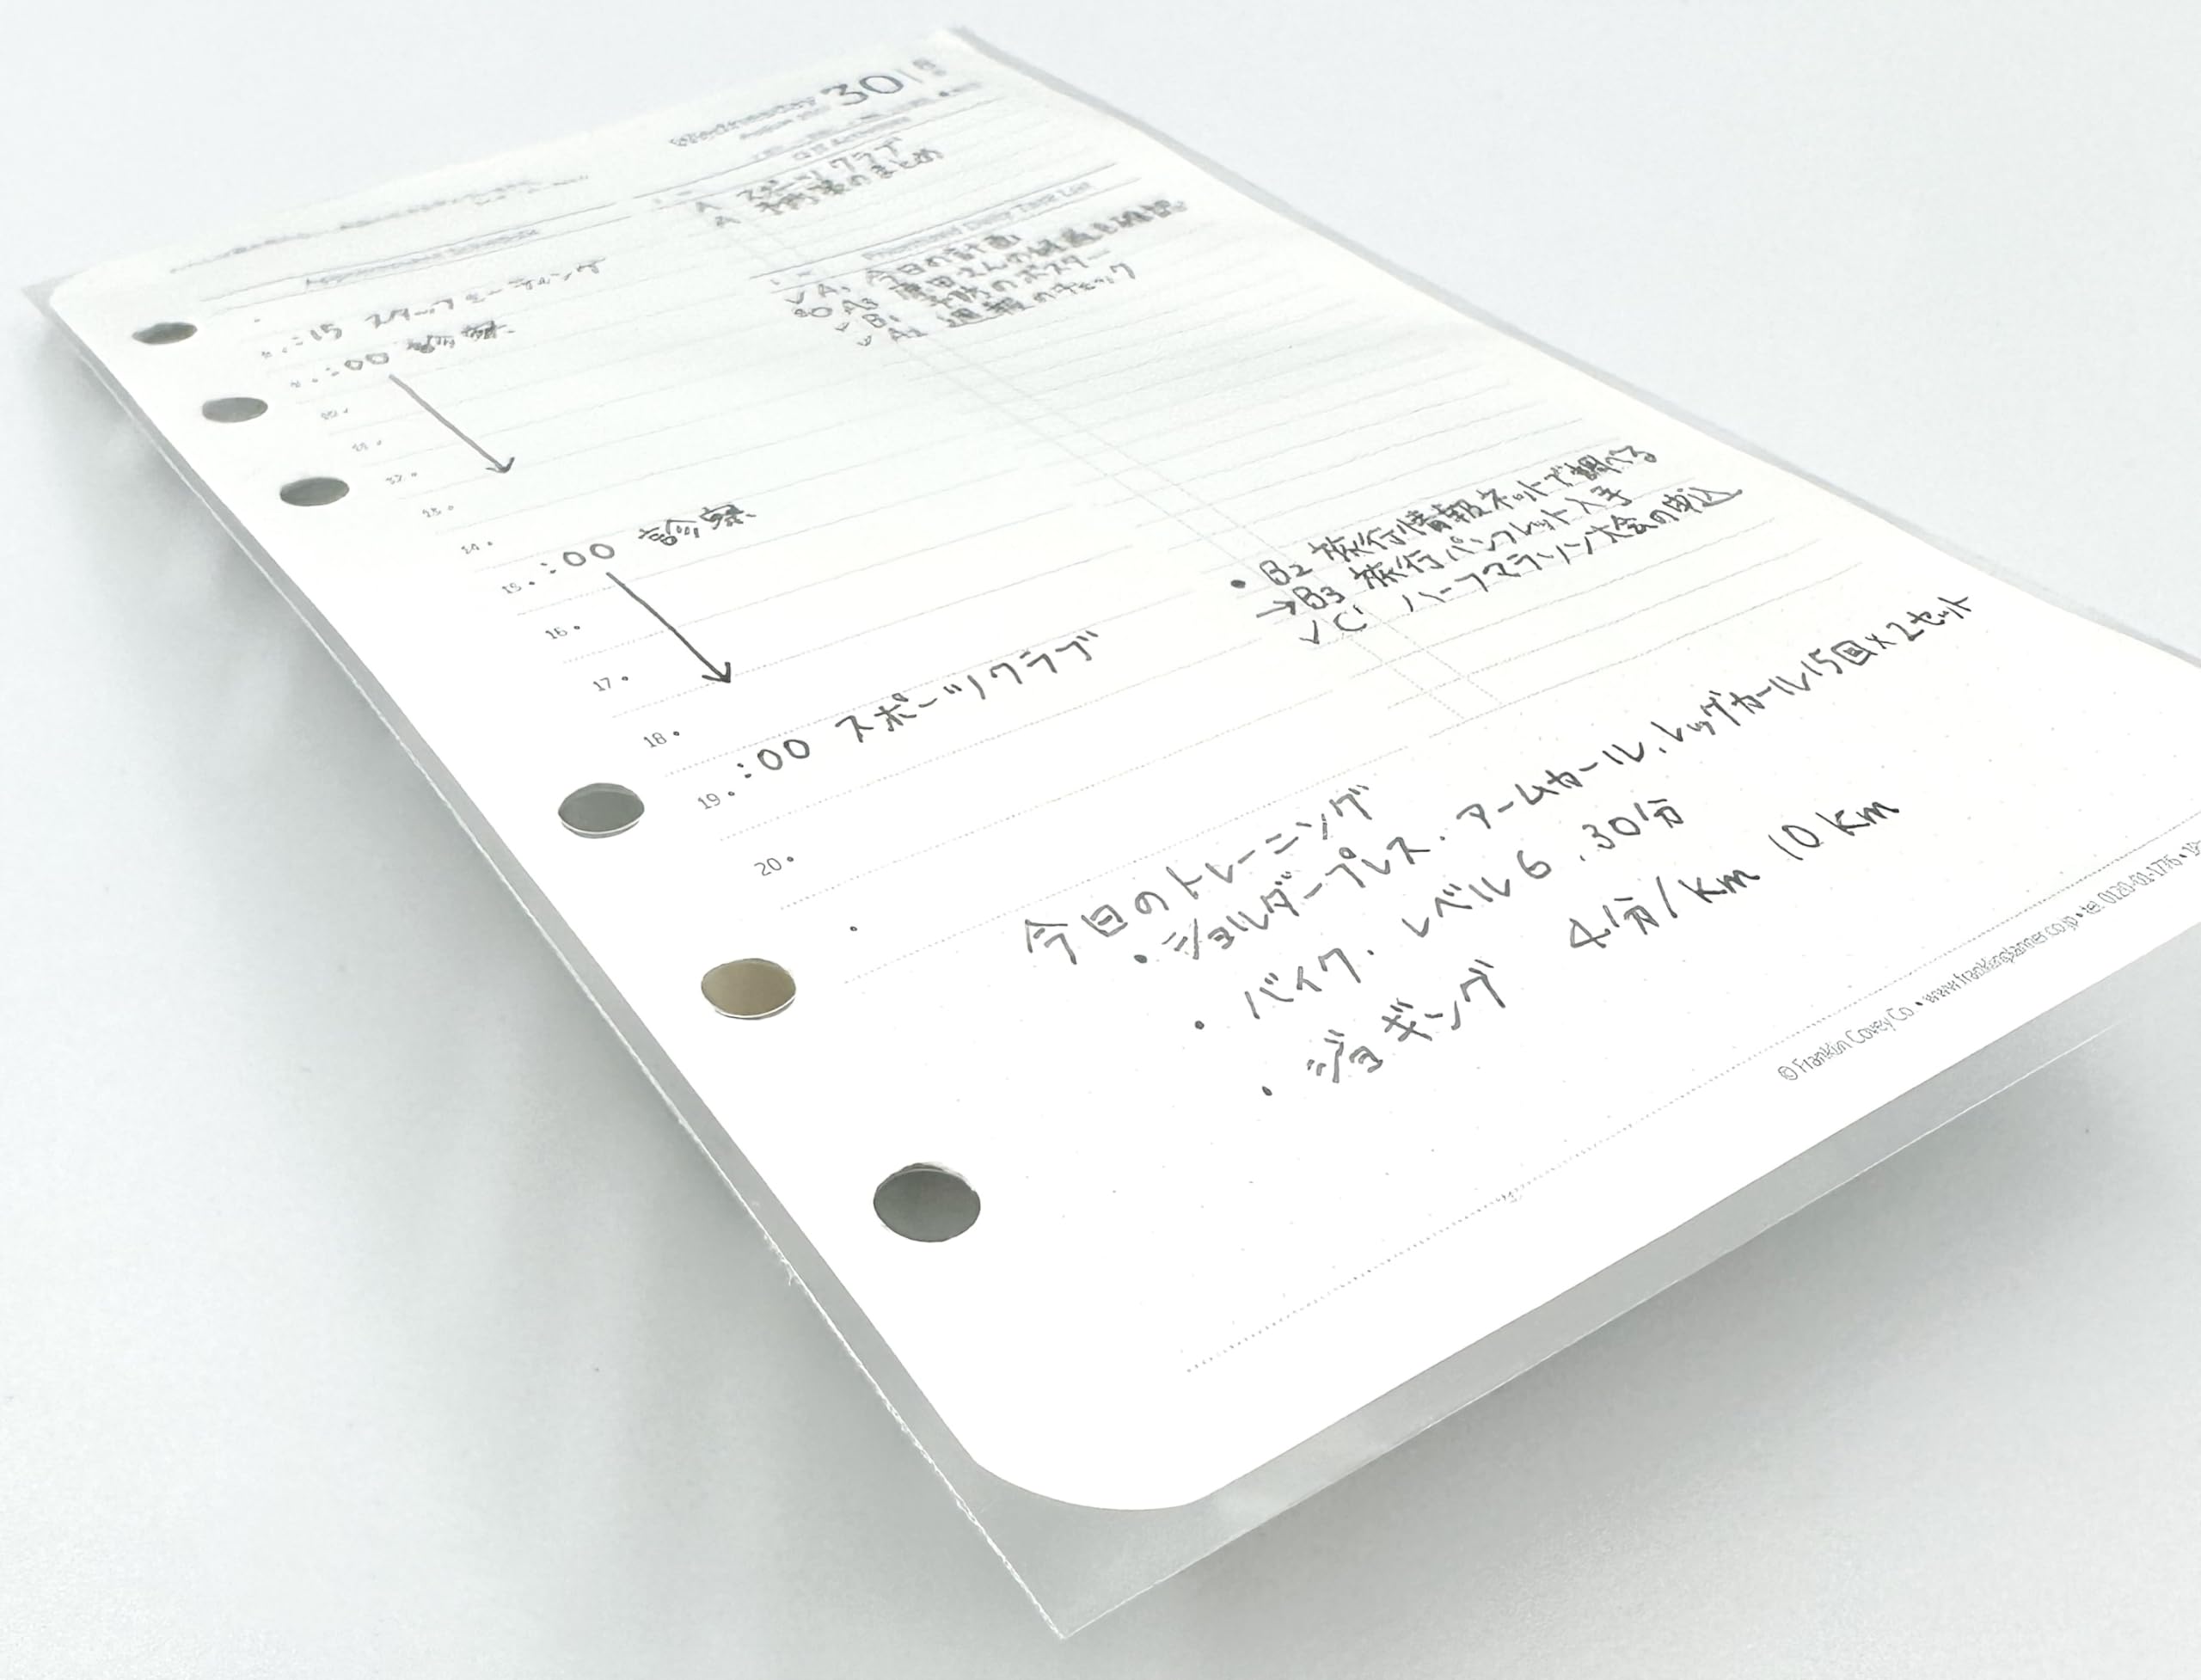 Wednesday 30
スポーツクラブ
Appointment Schedule
Prioritized Daily Task List
A1 今日の計画
B1 予防のポスター
のチェック
:15 スタッフミーティング
:00 診察
15. :00 診察
16.
17.
18.
19. :00 スポーツクラブ
20.
• B2 旅行情報ネットで調べる
→B3 旅行パンフレット入手
✓C1 ハーフマラソン大会の申込
今日のトレーニング
・ショルダープレス.アームカール.レッグカール15回×2セット
・バイク.レベル6.30分
・ジョギング 4分/km 10km
© Franklin Covey Co • www.franklinplanner.co.jp • tel. 0120-01-1776